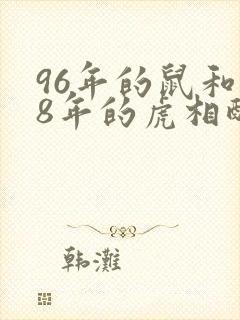 96年的鼠和
8年的虎相
韩滩